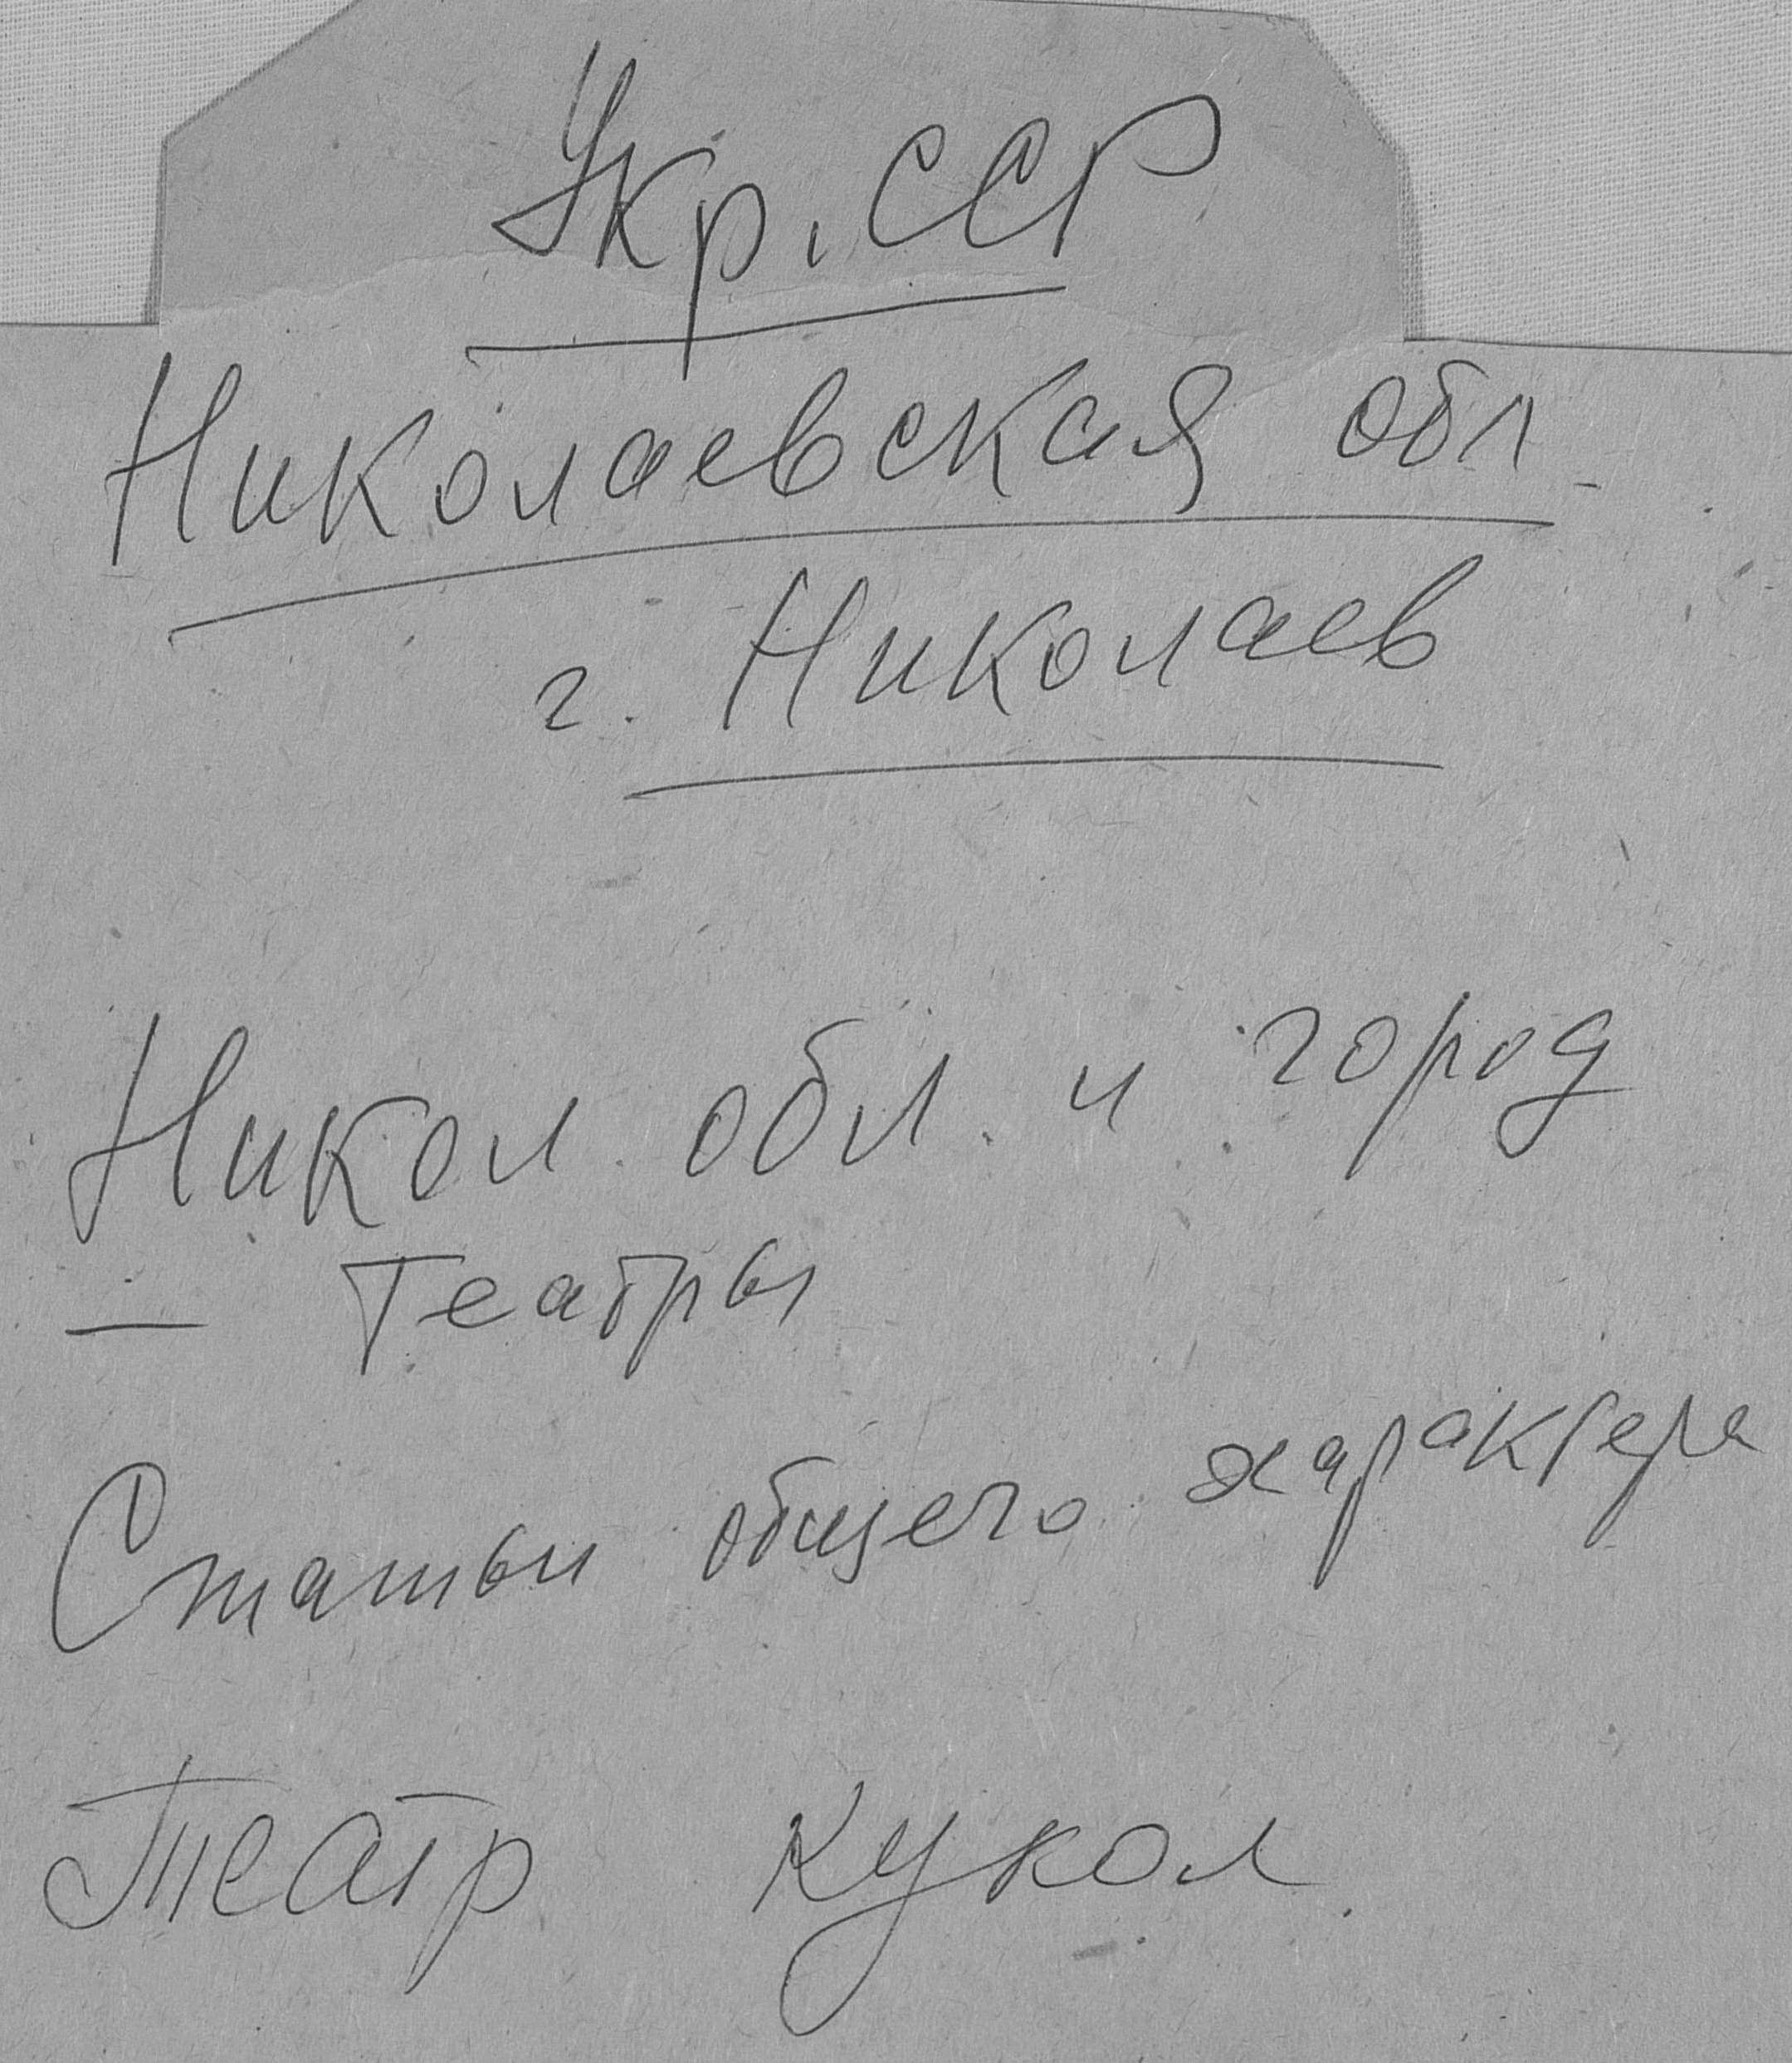 Укр. ССР
Николаевская обл.
г. Николаев
Никол. обл. и город
— Театры
Статьи общего характера
Театр Кукол.